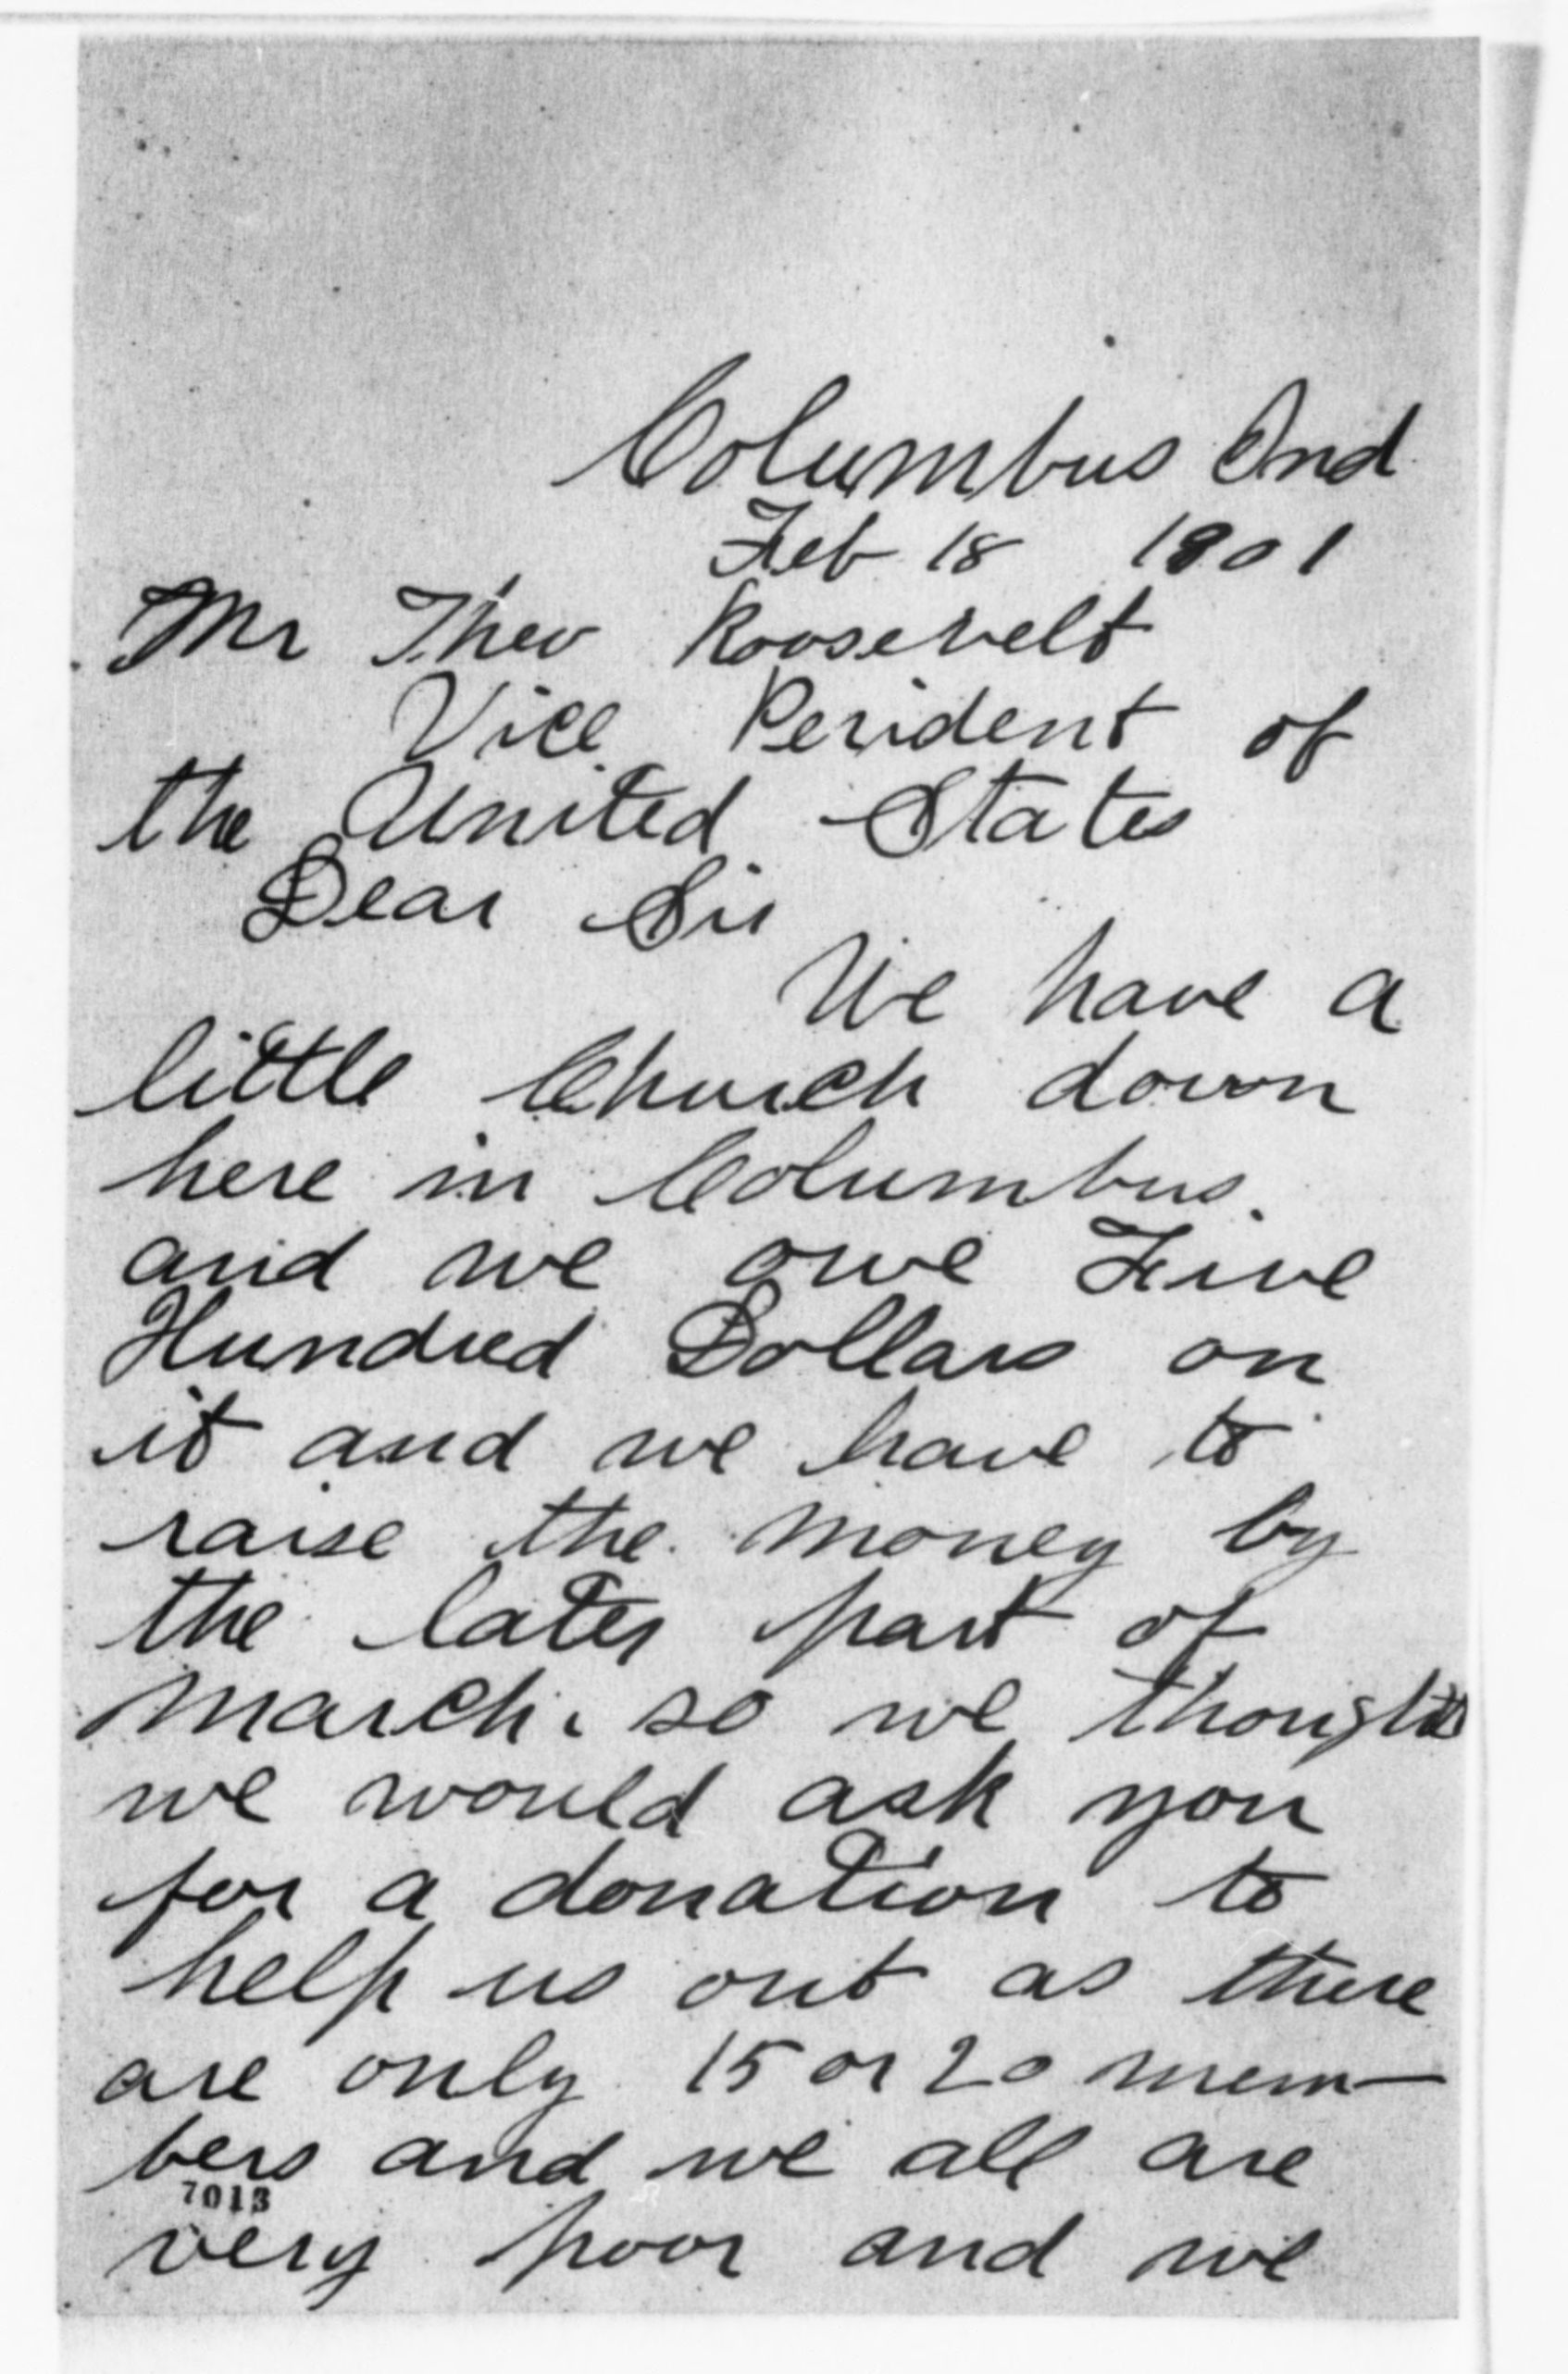 Columbus Ind
Feb 18 1901
Mr Theo Roosevelt
Vice Perident of
the United States
Dear Sir
We have a
little Church down
here in Columbus.
and we owe Five
Hundred Dollars on
it and we have to
raise the money by
the later part of
March. so we thought
we would ask you
for a donation to
help us out as there
are only 15 or 20 mem-
bers and we all are
7013
very poor and we